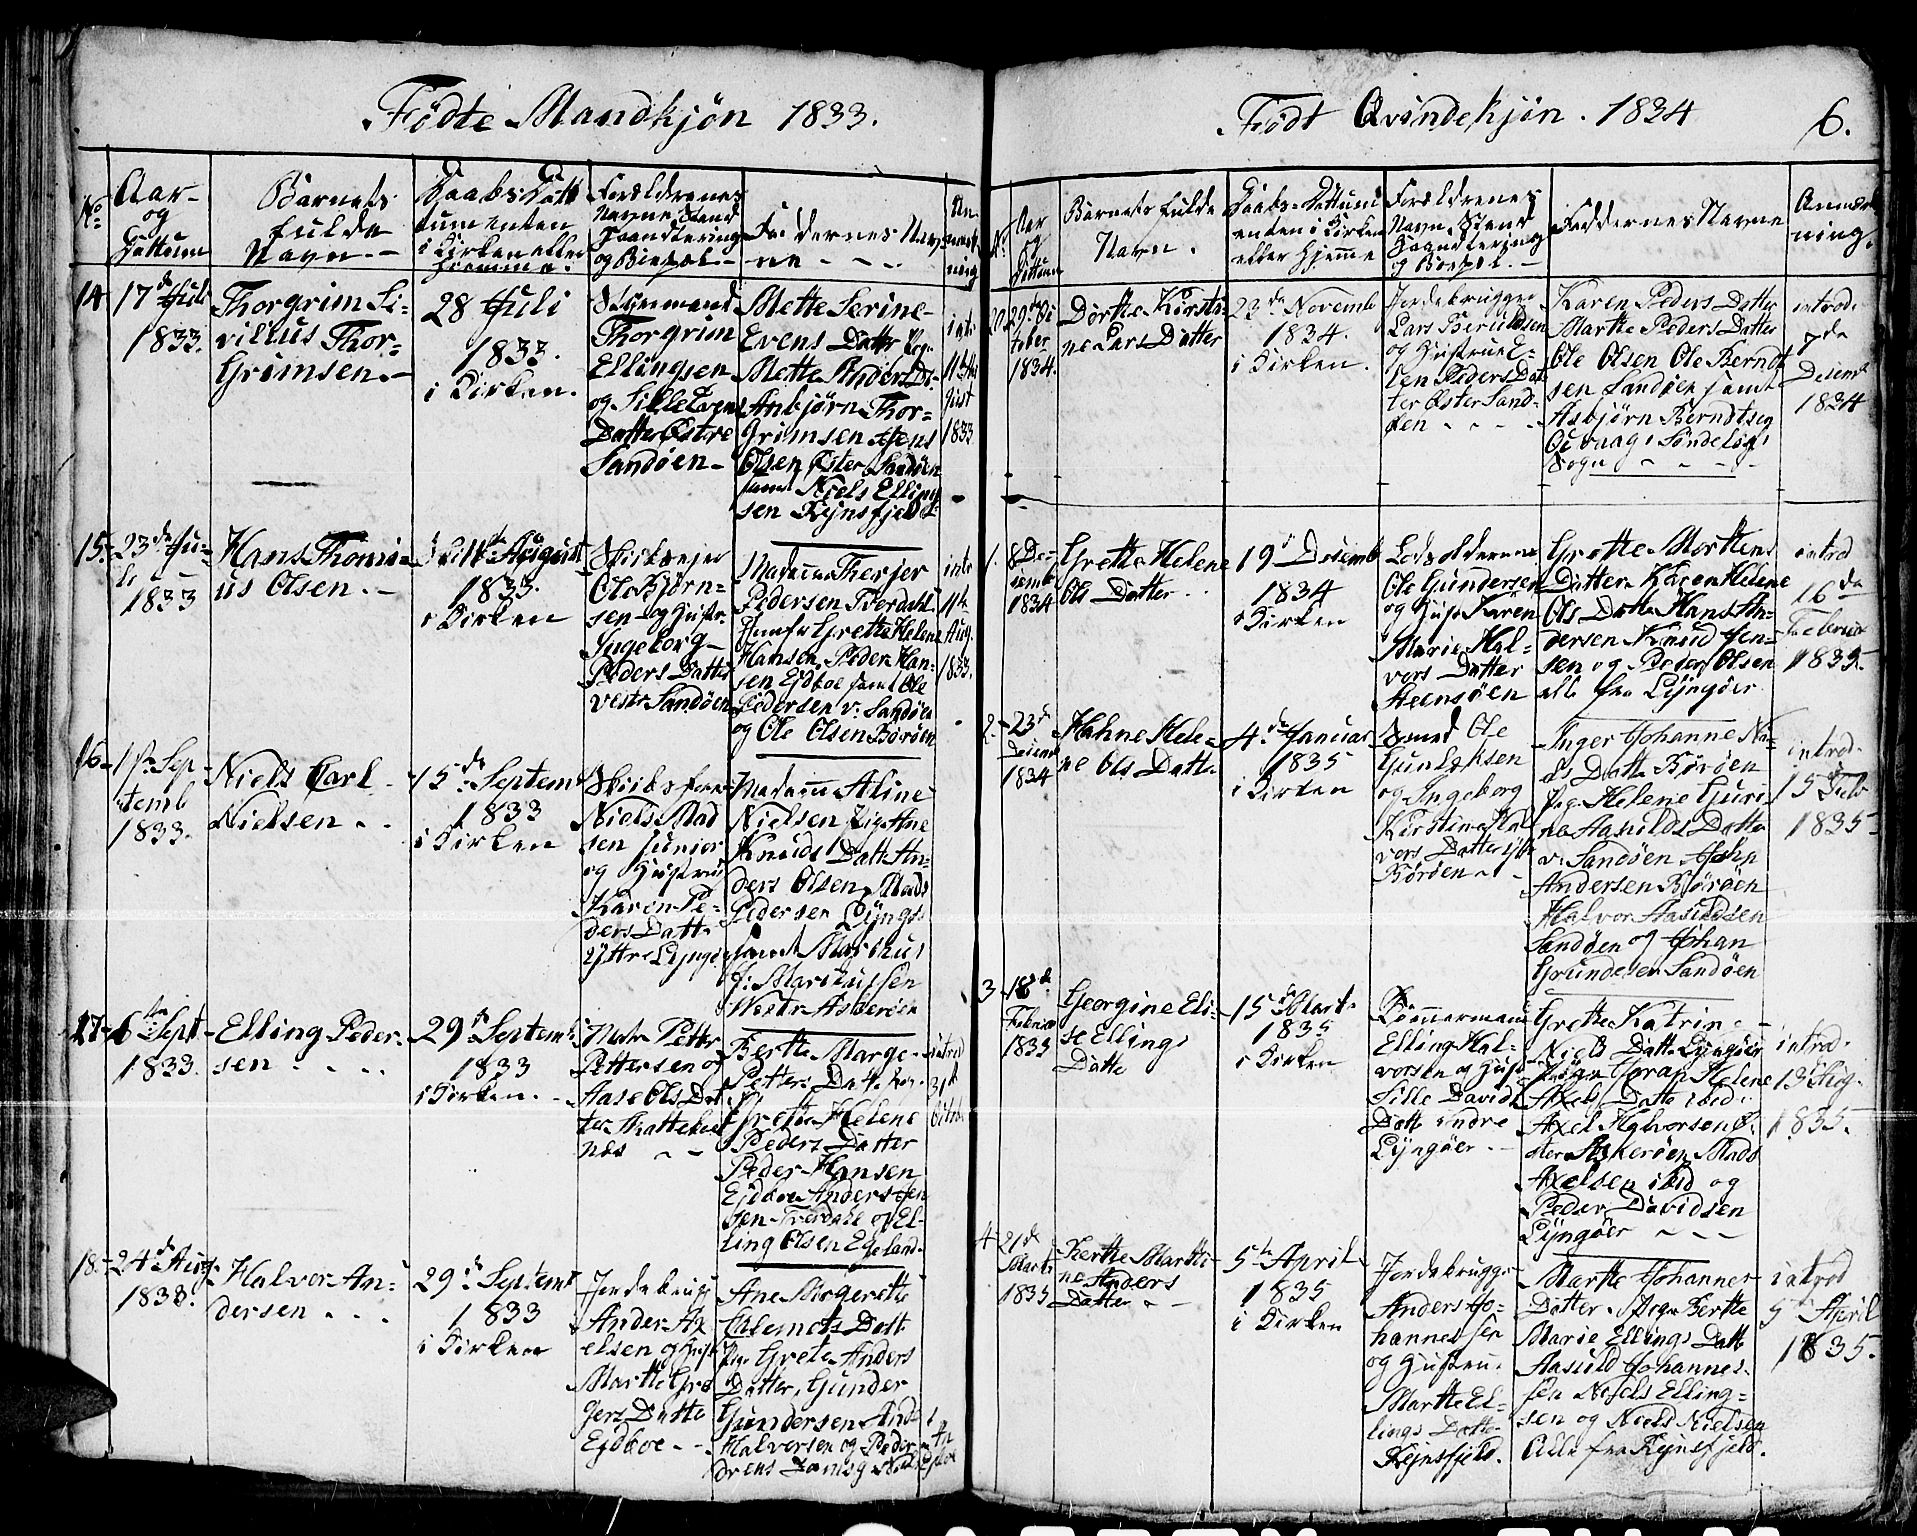 Fødte Mandkjøn 1833.
No.
Aar-
og
Dattum
Barnets
fulde
Navn.-
Daabs Datt
tum enten
i Kirken eller
hiemme.
Forældrenes
Navne Stand
Haandtering
og Boepæl.-
Faddernes Nav-
ne - - -
An-
mærk-
ning
14.
17de Juli
1833.
Thorgrim Si-
vilius Thor-
Grimsen.-
28 Juli
1833.
i Kirken.
Thorgrim
Ellingsen
og Sille Evens
Datter Østre
Sandøen-
Mette Serine
Evens Datter Pige
Mette Anders D:
Anbjørn Thor-
Grimsen Jens
Olsen Øster Sandøen
samt Niels Elling
sen Rejnsfjeld
intr
11 Au
Gust
1833
15.
23de Ju-
li
1833
Hans Thomi-
us Olsen.-
11te August
1833.
i Kirken
Ole Bjørn-
sen og Hustr.
Ingeborg
Peders Datter
vestr Sandøen
Madame Therjer
Pedersen Tverdahl
Jumfr Grethe Helene
Hansen, Peder Han-
sen Ejdboe samt Ole
Pedersen v: Sandøen
og Ole Olsen Børøen
intr
11te
Aug.
1833.
16-
1ste Sep
temb
1833.
Niels Carl
Nielsen - -
15de Septem
1833
i Kirken
Niels Mad
sen Junior
og Hustru
Karen Pe-
ders Datt
Yttre Lyngøe
Madame Aline
Nielsen Pig: Ane
Knuds Datt An-
ders Olsen Mads
Pedersen Lyngø
samt Markus
J: Marcussen
Vestr Askerøen
17-
6te Sept
1833.
Elling Peder-
sen - - - -
29de Septem
1833
i Kirken. -
Matr Petter
Pettersen og
Aase Ols Dat
ter
næs - -
Berthe Marge
Petters Datt
Grethe Helene
Peders Datter
Peder Hansen
Ejdboe Anders Jen
sen Tverdale og El-
ling Olsen Egeland.
introd
31te
18.-
24de Aug.
1833.
Halvor An-
dersen - - -
29de Septem
1833
i Kirken
Jordebrug
Anders Ax
elsen og Hust
Marthe Gre
gers Datte
Ejdboe - -
Ane Margrethe
Clemets Datt
Pige Grete Anders
Datter, Gunder
Gundersen And
Halvorsen og Peder
Født Qvindekjøn. 1834
6.
No.
Aar
og
Dattum
Barnets fulde
Navn.
Daabs-Dattum
enten i Kirken
eller hjemme
Forældrenes
Navn, Stand
Haandtering
og Boepæl.-
Faddernes Navne
Anmærk
ning.
20
29de Oc
tober
1834.
Dorthe Kirsti-
ne Lars Datter
23de Novemb
1834.
i Kirken.
Jordebrugger
Lars Beruldsen
og Hustrue E-
len Peders Dat
ter Øster Sand-
øen - - - -
Karen Peders Datter
Marthe Peders Datter
Ole Olsen Ole Berndt
sen Sandøen samt
Asbjørn Berndtsen
Søndeløgs
Sogn - - - -
introd.
7de
Desemb
1834
1.
8 De-
semb
1834
Grethe Helene
Ols Datter - -
19de Desemb
1834
i Kirken
Lodsoldermand
Ole Gundersen
og Hust Karen
Marie Hal-
vors Datter
Steensøen
Grethe Mortens
Datter Karen Helene
Ols Datter Hans An-
dersen Knud Jen-
sen og Peder Olsen
alle fra Lyngøer
introd
16de
Februar
1835.
2-
23de
Desemb
1834
Hahne Hele-
ne Ols Datte
4de Januar
1835
i Kirken
Smed Ole
Gunlaksen
og Ingeborg
Kirstine Hal
vors Datter
Børøen - -
Inger Johanne Ni-
ls Datte Børøen
Pig: Helene Guri-
ne Aanilds Datte
v: Sandøen
Andersen Børøen
Halvor Aanildsen
Sandøen og Johan
Grundesen Sandøen
introd.
15 Feb
1835
3-
18de
Februar
1835
Georgine Eli-
se Ellings
Datte
15de Mart
1835
i Kirken
Tømmermand
Elling Hal-
vorsen og Hust
Sille Davids
Datt indre
Lyngøer -
Grethe Katrine -
Niels Datte Lyngøer
Helene
Axels Datte ibid:
Axel Halvorsen Ø-
ster Askerøen Mads
Axelsen ibid og
Peder Davidsen
Lyngøer - - -
introd.
13 Aug.
1835.
4
21de
Marts
1835
Berthe Marthi-
ne Anders
Datter - -
5te April
1835
i Kirken
Jordebrugge
Anders Jo-
hannessen
og Hustru.
Marthe El-
lings Datte
Rejnsfjeld.
Marthe Johannes
Datter. Pige Berthe
Marie Ellings Datt
Aanuld Johannes-
sen Niels Elling-
sen og Niels Nielsen
Alle fra Rejnsfjeld.
introd
5te April
1835.